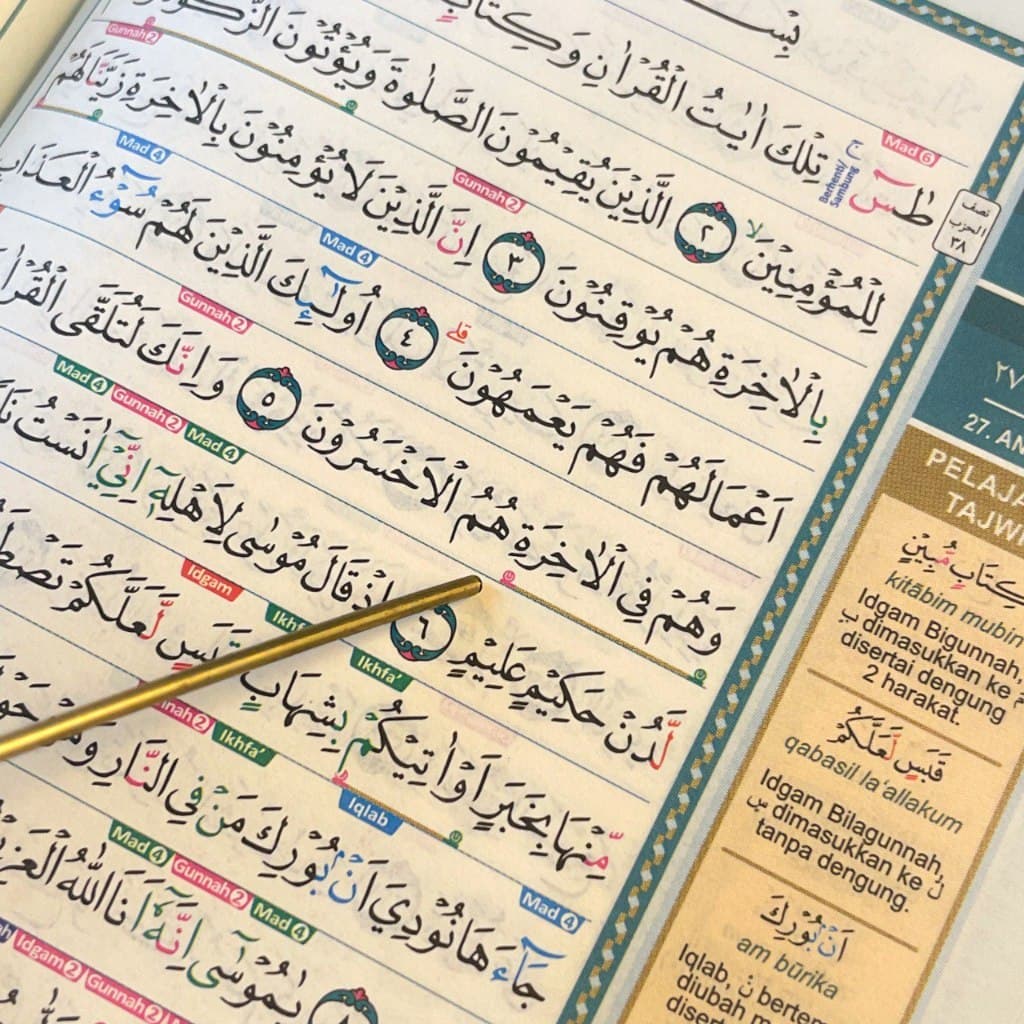 بِسْ
Mad 6
طٰسۤ تِلْكَ اٰيٰتُ الْقُرْاٰنِ وَكِتَابٍ
Berhenti/
Sambung
Gunnah 2
لِلْمُؤْمِنِيْنَ ۙ ٢ الَّذِيْنَ يُقِيْمُوْنَ الصَّلٰوةَ وَيُؤْتُوْنَ
Gunnah 2
بِالْاٰخِرَةِ هُمْ يُوْقِنُوْنَ ٣ اِنَّ الَّذِيْنَ لَا يُؤْمِنُوْنَ بِالْاٰخِرَةِ زَيَّنَّا لَهُمْ
Mad 4 Mad 4
اَعْمَالَهُمْ فَهُمْ يَعْمَهُوْنَ ۗ ٤ اُولٰۤىِٕكَ الَّذِيْنَ لَهُمْ سُوْۤءُ الْعَذَابِ
Gunnah 2
وَهُمْ فِى الْاٰخِرَةِ هُمُ الْاَخْسَرُوْنَ ٥ وَاِنَّكَ لَتُلَقَّى
Mad 4 Gunnah 2 Mad 4
لَّدُنْ حَكِيْمٍ عَلِيْمٍ ٦ اِذْ قَالَ مُوْسٰى لِاَهْلِهٖٓ اِنِّيْٓ اٰنَسْتُ
Idgam Ikhfa' Ikhfa'
مِّنْهَا بِخَبَرٍ اَوْ اٰتِيْكُمْ بِشِهَابٍ قَبَسٍ لَّعَلَّكُمْ
Gunnah 2 Ikhfa' Iqlab
Mad 4
جَاۤءَهَا نُوْدِيَ اَنْۢ بُوْرِكَ مَنْ فِى النَّارِ
Mad 4 Gunnah 2 Mad 4
يٰمُوْسٰٓى اِنَّهٗٓ اَنَا اللّٰهُ
Idgam 2 Gunnah 2
نصف
الحزب
٣٨
٢٧
27. AN
PELAJA
TAJW
كِتَابٍ مُّبِيْنٍ
kitābim mubin
Idgam Bigunnah,
ب dimasukkan ke م
disertai dengung
2 harakat.
قَبَسٍ لَّعَلَّكُمْ
qabasil la'allakum
Idgam Bilagunnah,
س dimasukkan ke ل
tanpa dengung.
اَنْۢ بُوْرِكَ
am būrika
Iqlab, نْ bertem
diubah m
disert